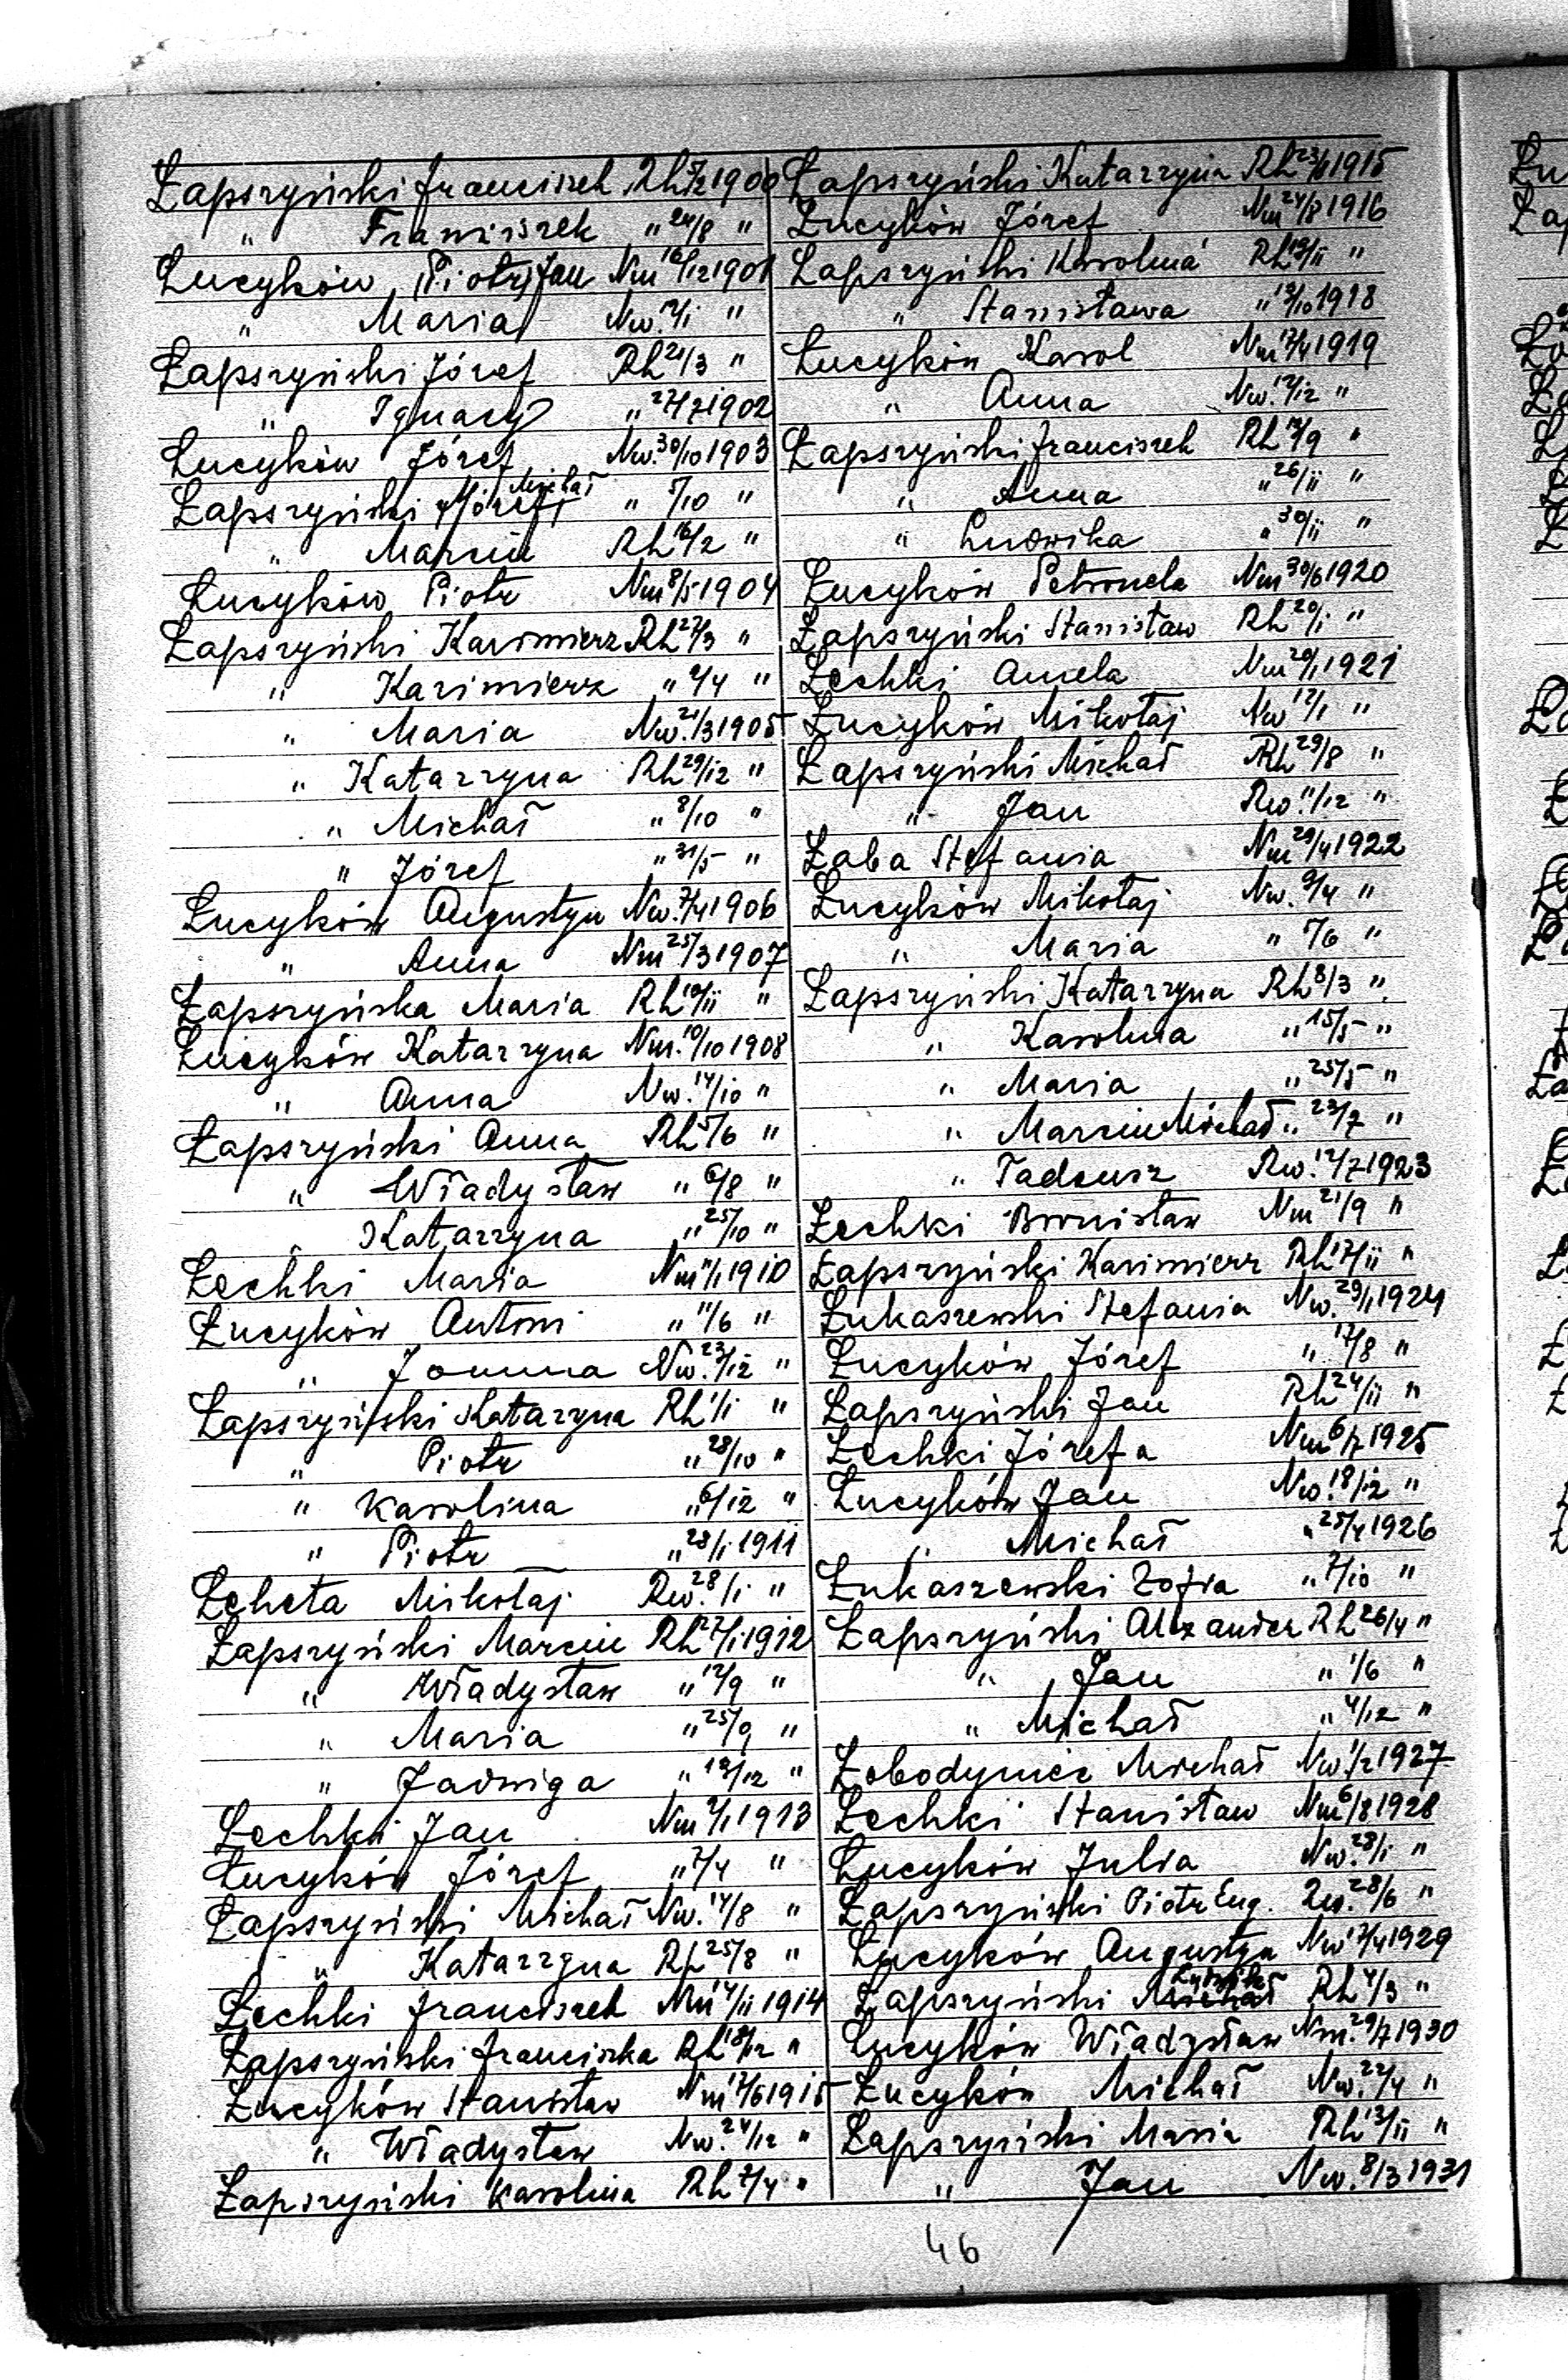 Łapszyński Franciszek Rh 5/2 1900
" Franciszek " 24/8 "
Łucyków Piotr Jan Nm 16/12 1901
" Maria Nw. 12/1 "
Łapszyński Józef Rh 21/3 "
" Ignacy " 27/7 1902
Łucyków Józef Nw. 30/10 1903
Łapszyński Józef Michał " 5/10 "
" Marcin Rh 16/2 "
Łucyków Piotr Nm 8/5 1904
Łapszyński Kazimierz Rh 27/3 "
" Kazimierz " 2/4 "
" Maria Nw. 21/3 1905
" Katarzyna Rh 29/12 "
" Michał " 8/10 "
" Józef " 31/5 "
Łucyków Augustyn Nw. 7/4 1906
" Anna Nm 25/3 1907
Łapszyńska Maria Rh 10/11 "
Łucyków Katarzyna Nm. 10/10 1908
" Anna Nw. 14/10 "
Łapszyński Anna Rh 5/6 "
" Władysław " 6/8 "
" Katarzyna " 25/10 "
Łechki Maria Nm 11/1 1910
Łucyków Antoni " 11/6 "
" Joanna Nw. 23/12 "
Łapszyński Katarzyna Rh 1/1 "
" Piotr " 28/10 "
" Karolina " 6/12 "
" Piotr " 28/1 1911
Łeheta Mikołaj Rw. 28/1 "
Łapszyński Marcin Rh 27/1 1912
" Władysław " 12/9 "
" Maria " 25/9 "
" Jadwiga " 18/12 "
Łechki Jan Nm 2/1 1913
Łucyków Józef " 7/4 "
Łapszyński Michał Nw. 14/8 "
" Katarzyna Rh 25/8 "
Łechki Franciszek Nm 4/11 1914
Łapszyński Franciszka Rh 18/12 "
Łucyków Stanisław Nm 12/6 1915
" Władysław Nw. 24/12 "
Łapszyński Karolina Rh 7/4 "
Łapszyński Katarzyna Rh 23/6 1915
Łucyków Józef Nm 24/8 1916
Łapszyński Karolina Rh 19/11 "
" Stanisława " 12/10 1918
Łucyków Karol Nm 17/4 1919
" Anna Nw. 12/12 "
Łapszyński Franciszek Rh 12/9 "
" Anna " 26/11 "
" Ludwika " 30/11 "
Łucyków Petronela Nm 30/6 1920
Łapszyński Stanisław Rh 20/1 "
Łechki Aniela Nm 20/1 1921
Łucyków Mikołaj Nw 12/1 "
Łapszyński Michał Rh 29/8 "
" Jan Rw. 11/12 "
Łaba Stefania Nm 29/4 1922
Łucyków Mikołaj Nw. 9/4 "
" Maria " 7/6 "
Łapszyński Katarzyna Rh 8/3 "
" Karolina " 15/5 "
" Maria " 25/5 "
" Marcin Michał " 23/7 "
" Tadeusz Rw. 12/7 1923
Łechki Bronisław Nm 21/9 "
Łapszyński Kazimierz Rh 17/11 "
Łukaszewski Stefania Nw. 29/1 1924
Łucyków Józef " 17/8 "
Łapszyński Jan Rh 24/11 "
Łechki Józefa Nm 6/7 1925
Łucyków Jan Nw. 18/12 "
" Michał " 25/4 1926
Łukaszewski Zofia " 7/10 "
Łapszyński Alexander Rh 26/4 "
" Jan " 1/6 "
" Michał " 4/12 "
Łobodyniec Michał Nw 1/2 1927
Łechki Stanisław Nm 6/8 1928
Łucyków Julia Nw. 28/1 "
Łapszyński Piotr Eug. Rw. 28/6 "
Łucyków Augustyn Nw 17/4 1929
Łapszyński Michał Rh 4/3 "
Łucyków Władysław Nm. 29/7 1930
Łucyków Michał Nw. 22/4 "
Łapszyński Maria Rh 12/11 "
" Jan Nw. 8/3 1931
46